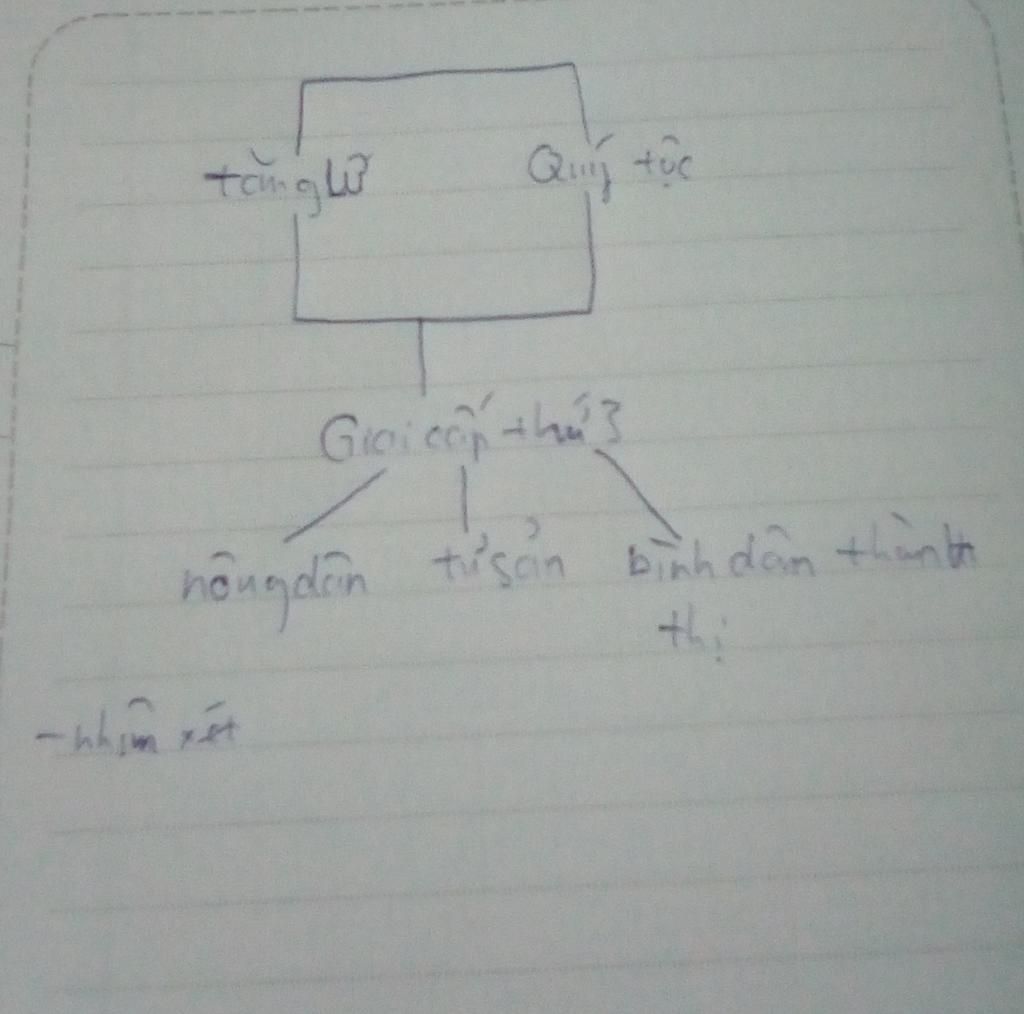 tăng lữ
Quý tộc
Giai cấp thứ 3
nông dân
tư sản
bình dân thành
thị
- nhận xét